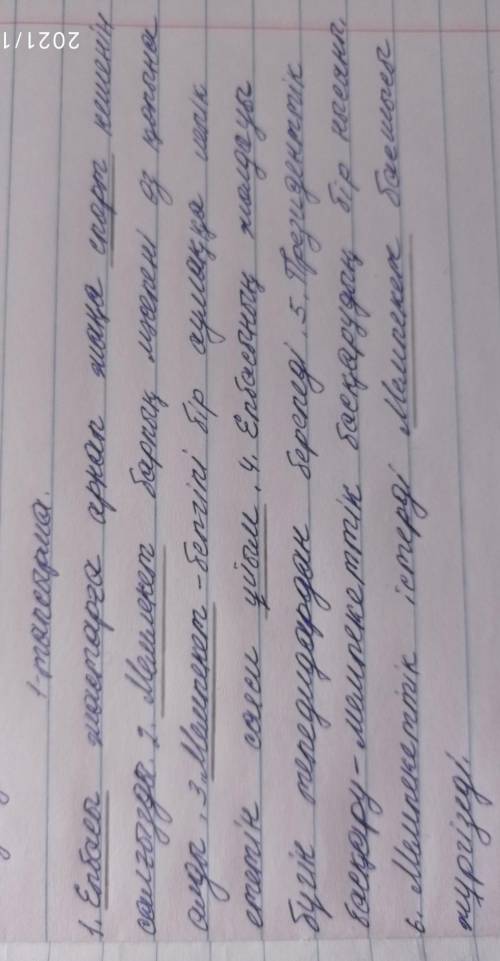 2021/1
1-тапсырма.
1. Елбасы жастарға арнап жаңа спорт кешенін
салғызды. 2. Мемлекет барлық мәселені өз қолына
алды. 3. Мемлекет - белгілі бір аумаққа иелік
ететін саяси ұйым. 4. Елбасының жолдауы
бүгін теледидардан беріледі. 5. Президенттік
басқару - мемлекеттік басқарудың бір нысаны.
6. Мемлекеттік істерді Мемлекет басшысы
жүргізеді.